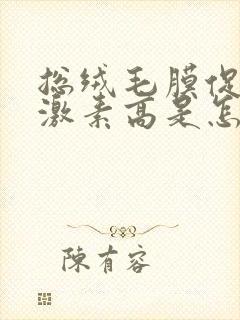 总绒毛膜促
激素高是怎
陳有容